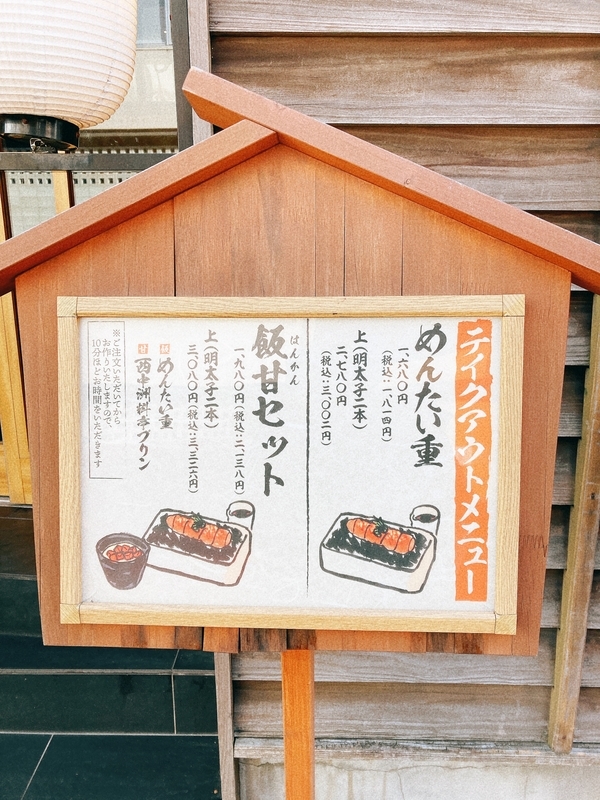 テイクアウトメニュー
めんたい重
一、六八〇円
(税込:一、八一四円)
上(明太子二本)
二、七八〇円
(税込:三、〇〇二円)
飯甘セット
はんかん
一、九八〇円(税込:二、一三八円)
上(明太子二本)
三、〇八〇円(税込:三、三二六円)
めんたい重
甘 西中洲料亭プリン
※ご注文いただいてから
お作りいたしますので、
10分ほどお時間をいただきます